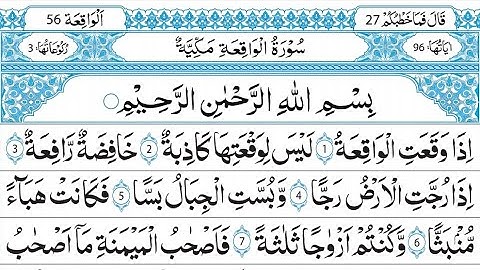 قَالَ فَمَا خَطْبُكُمْ 27 اَلْوَاقِعَة 56
اٰيَاتُهَا: 96 سُوْرَةُ الْوَاقِعَةِ مَكِّيَّةٌ رُكُوْعَاتُهَا: 3
بِسْمِ اللّٰهِ الرَّحْمٰنِ الرَّحِيْمِ
اِذَا وَقَعَتِ الْوَاقِعَةُ 1 لَيْسَ لِوَقْعَتِهَا كَاذِبَةٌ 2 خَافِضَةٌ رَّافِعَةٌ 3
اِذَا رُجَّتِ الْاَرْضُ رَجًّا 4 وَّبُسَّتِ الْجِبَالُ بَسًّا 5 فَكَانَتْ هَبَآءً
مُّنْۢبَثًّا 6 وَّكُنْتُمْ اَزْوَاجًا ثَلٰثَةً 7 فَاَصْحٰبُ الْمَيْمَنَةِ مَاۤ اَصْحٰبُ